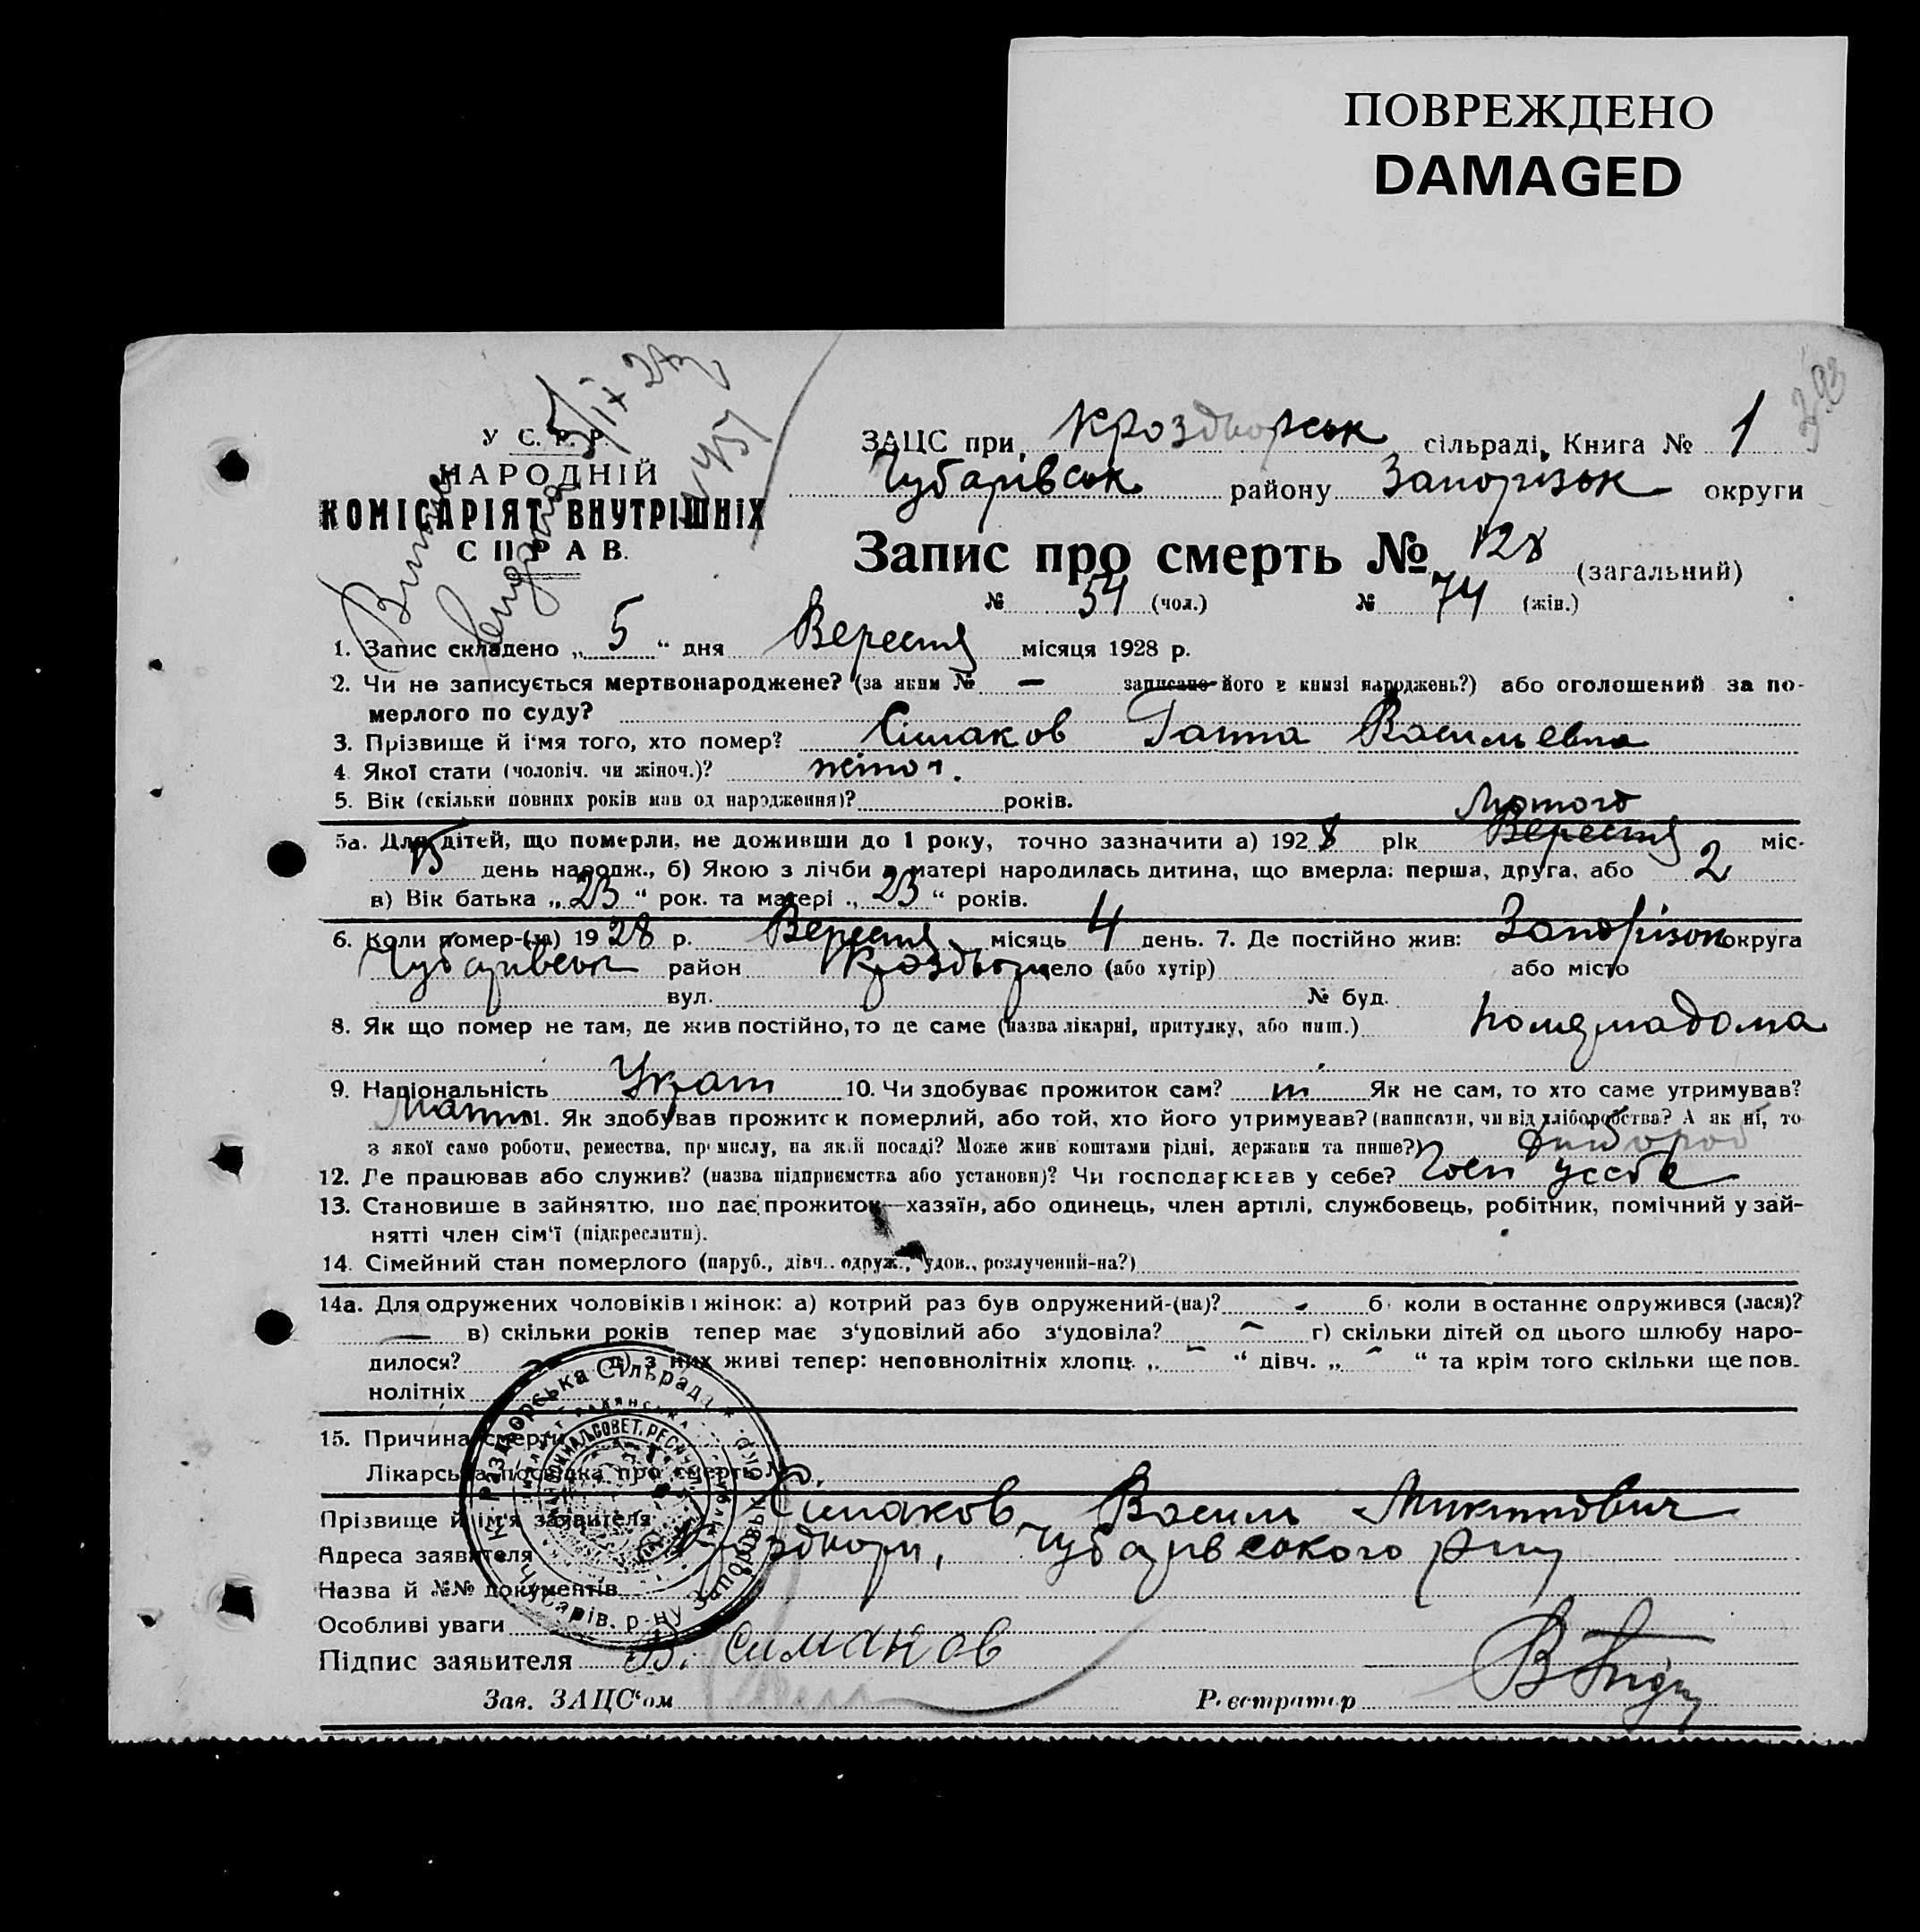 ПОВРЕЖДЕНО
DAMAGED
393
5/IX 28р.
№ 457
У С. Р. Р.
НАРОДНІЙ
КОМІСАРІЯТ ВНУТРІШНІХ
СПРАВ.
ЗАЦС при Кроздворськ сільраді, Книга № 1
Чубарівськ району Запорізьк округи
Запис про смерть № 128 (загальний)
№ 54 (чол.) № 74 (жін.)
1. Запис складено „ 5 “ дня Вересня місяця 1928 р.
2. Чи не записується мертвонароджене? (за яким № — записано його в книзі народжень?) або оголошений за по-
мерлого по суду?
3. Прізвище й ім'я того, хто помер? Сімаков Ганна Васильевна
4. Якої стати (чоловіч. чи жіноч.)? жіноч.
5. Вік (скільки повних років мав од народження)? років.
Лютого
5а. Для дітей, що померли, не доживши до 1 року, точно зазначити а) 1928 рік Вересня міс-
15 день народж., б) Якою з лічби в матері народилась дитина, що вмерла: перша, друга, або 2
в) Вік батька „ 23 “ рок. та матері „ 23 “ років.
6. Коли помер-(ла) 1928 р. Вересня місяць 4 день. 7. Де постійно жив: Запорізьк округа
Чубарівськ район Кроздори село (або хутір) або місто
вул. № буд.
8. Як що помер не там, де жив постійно, то де саме (назва лікарні, притулку, або инш.) померла дома
9. Національність Украін 10. Чи здобуває прожиток сам? ні Як не сам, то хто саме утримував?
11. Як здобував прожиток померлий, або той, хто його утримував? (написати, чи від хліборобства? А як ні, то
з якої само роботи, ремества, промислу, на якій посаді? Може жив коштами рідні, держави та инше?) Хлібороб
12. Де працював або служив? (назва підприємства або установи)? Чи господарював у себе? Госп усебе
13. Становище в зайняттю, що дає прожиток—хазяїн, або одинець, член артілі, службовець, робітник, помічний у зай-
нятті член сім'ї (підкреслити).
14. Сімейний стан померлого (паруб., дівч., одруж., удов., розлучений-на?)
14а. Для одружених чоловіків і жінок: а) котрий раз був одружений-(на)? - б) коли в останнє одружився (лася)?
— в) скільки років тепер має з'удовілий або з'удовіла? - г) скільки дітей од цього шлюбу наро-
дилося? - д) з них живі тепер: неповнолітніх хлопц. „ - “ дівч. „ - “ та крім того скільки ще пов-
нолітніх
15. Причина смерти
Лікарська посвідка про смерть №
Прізвище й ім'я заявителя Сімаков Василь Микитович
Адреса заявителя Кроздори, Чубарівського р-ну
Назва й №№ документів
Особливі уваги
Підпис заявителя В. Симаков
Зав. ЗАЦС'ом Реєстратор
К. Раздорська Сільрада * Чубарів. р-ну Запорізьк. окр.